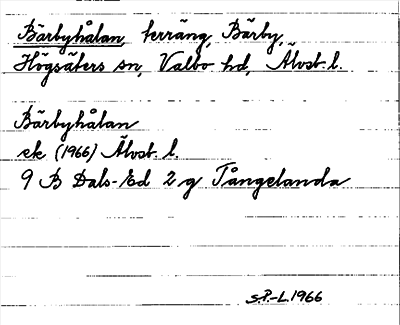 Bärbyhålan, terräng, Bärby,
Högsäters sn, Valbo hd, Älvsb. l.
Bärbyhålan
ek (1966) Älvsb. l.
9 B Dals-Ed 2 g Tångelanda
S.P.-L. 1966